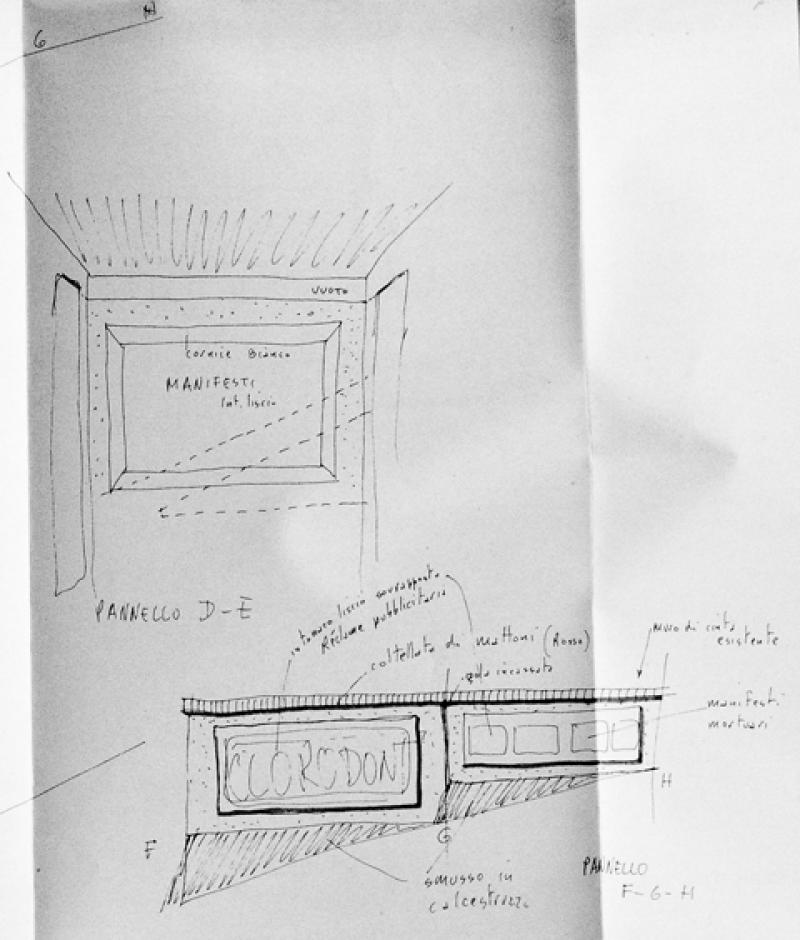 G
H
VUOTO
cornice Bianca
MANIFESTI
int. liscio
PANNELLO D-E
intonaco liscio sovrapposto
Réclame pubblicitaria
coltellata di mattoni (Rosso)
muro di cinta
esistente
gola incassata
manifesti
mortuari
CLORODONT
H
F
G
smusso in
calcestruzzo
PANNELLO
F-G-H